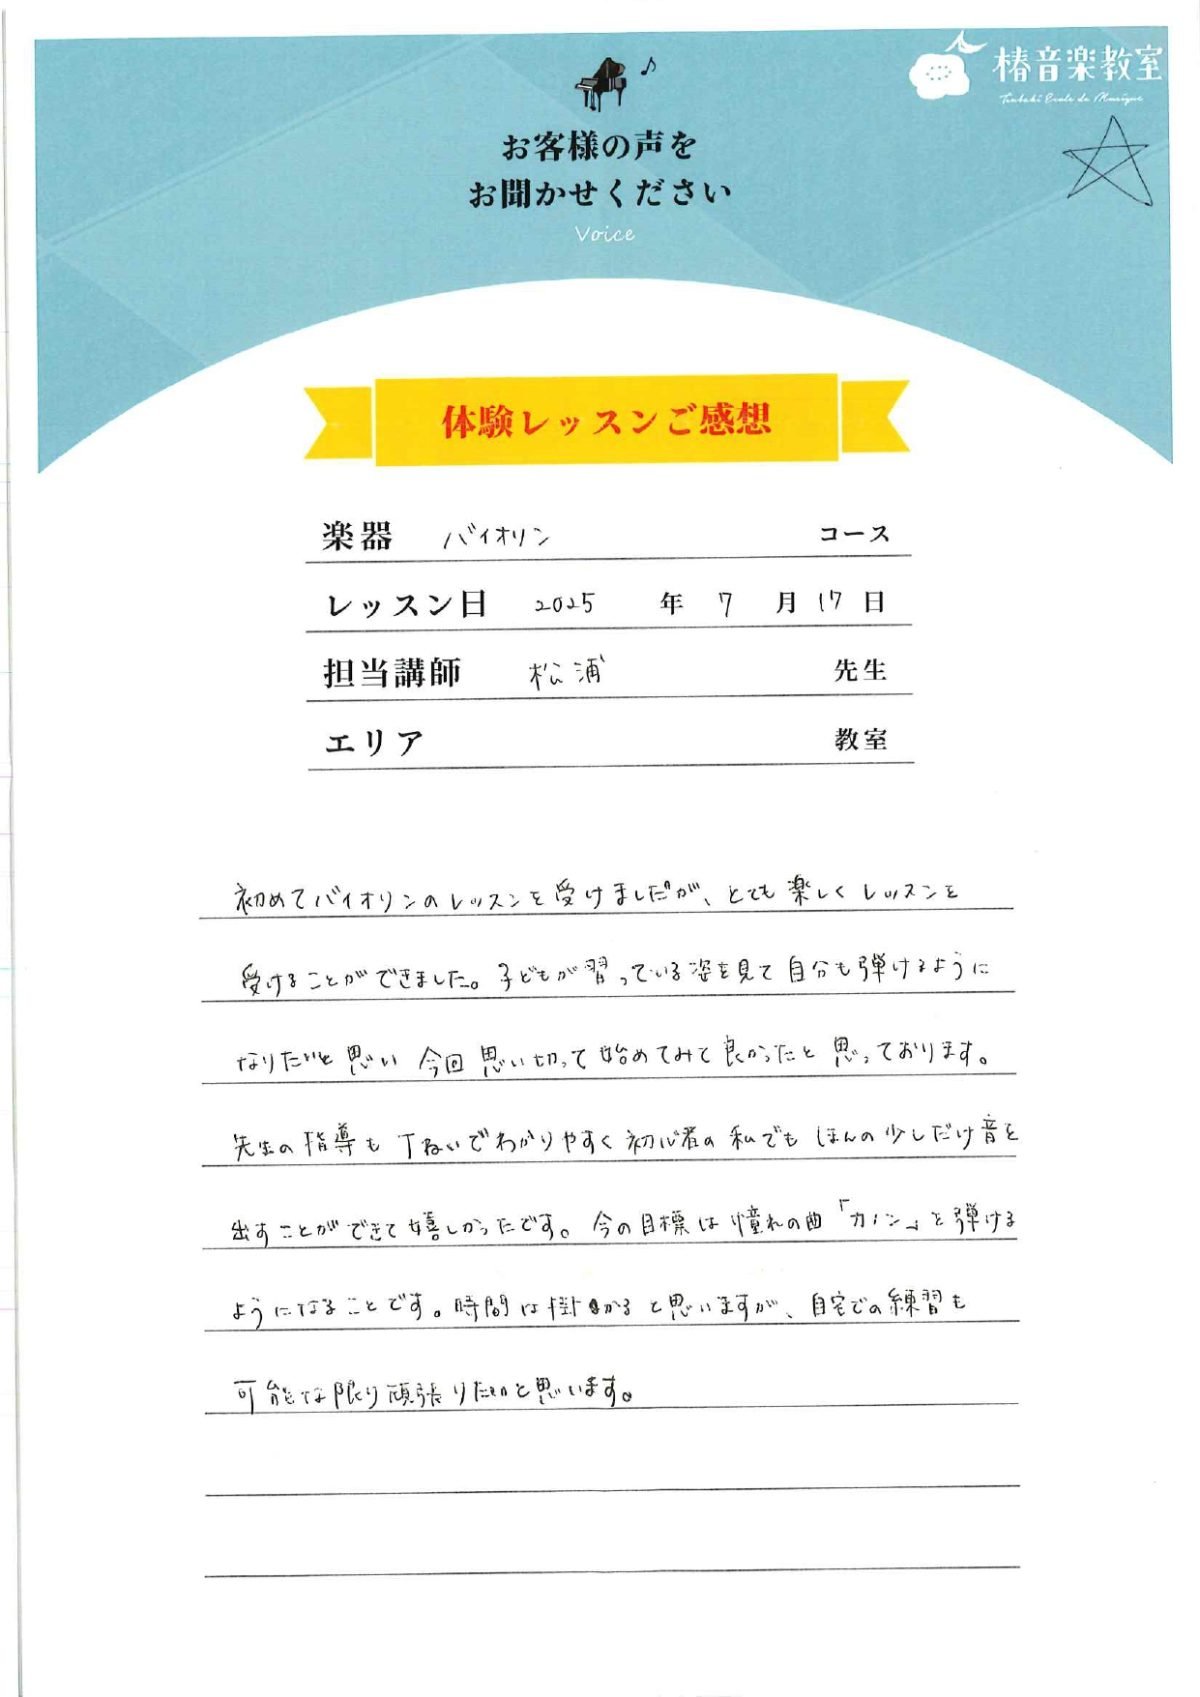 椿音楽教室
Tsubaki Ecole de Musique
お客様の声を
お聞かせください
Voice
体験レッスンご感想
楽器 バイオリン コース
レッスン日 2025 年 7 月 17 日
担当講師 松浦 先生
エリア 教室
初めてバイオリンのレッスンを受けましたが、とても楽しくレッスンを
受けることができました。子どもが習っている姿を見て自分も弾けるように
なりたいと思い今回思い切って始めてみて良かったと思っております。
先生の指導も丁ねいでわかりやすく初心者の私でもほんの少しだけ音を
出すことができて嬉しかったです。今の目標は憧れの曲「カノン」を弾ける
ようになることです。時間は掛かると思いますが、自宅での練習も
可能な限り頑張りたいと思います。